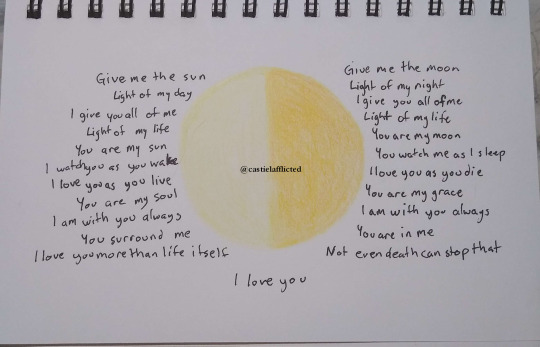 Give me the sun
Light of my day
I give you all of me
Light of my life
You are my sun
I watch you as you wake
I love you as you live
You are my soul
I am with you always
You surround me
I love you more than life itself
@castielafflicted
Give me the moon
Light of my night
I give you all of me
Light of my life
You are my moon
You watch me as I sleep
I love you as you die
You are my grace
I am with you always
You are in me
Not even death can stop that
I love you